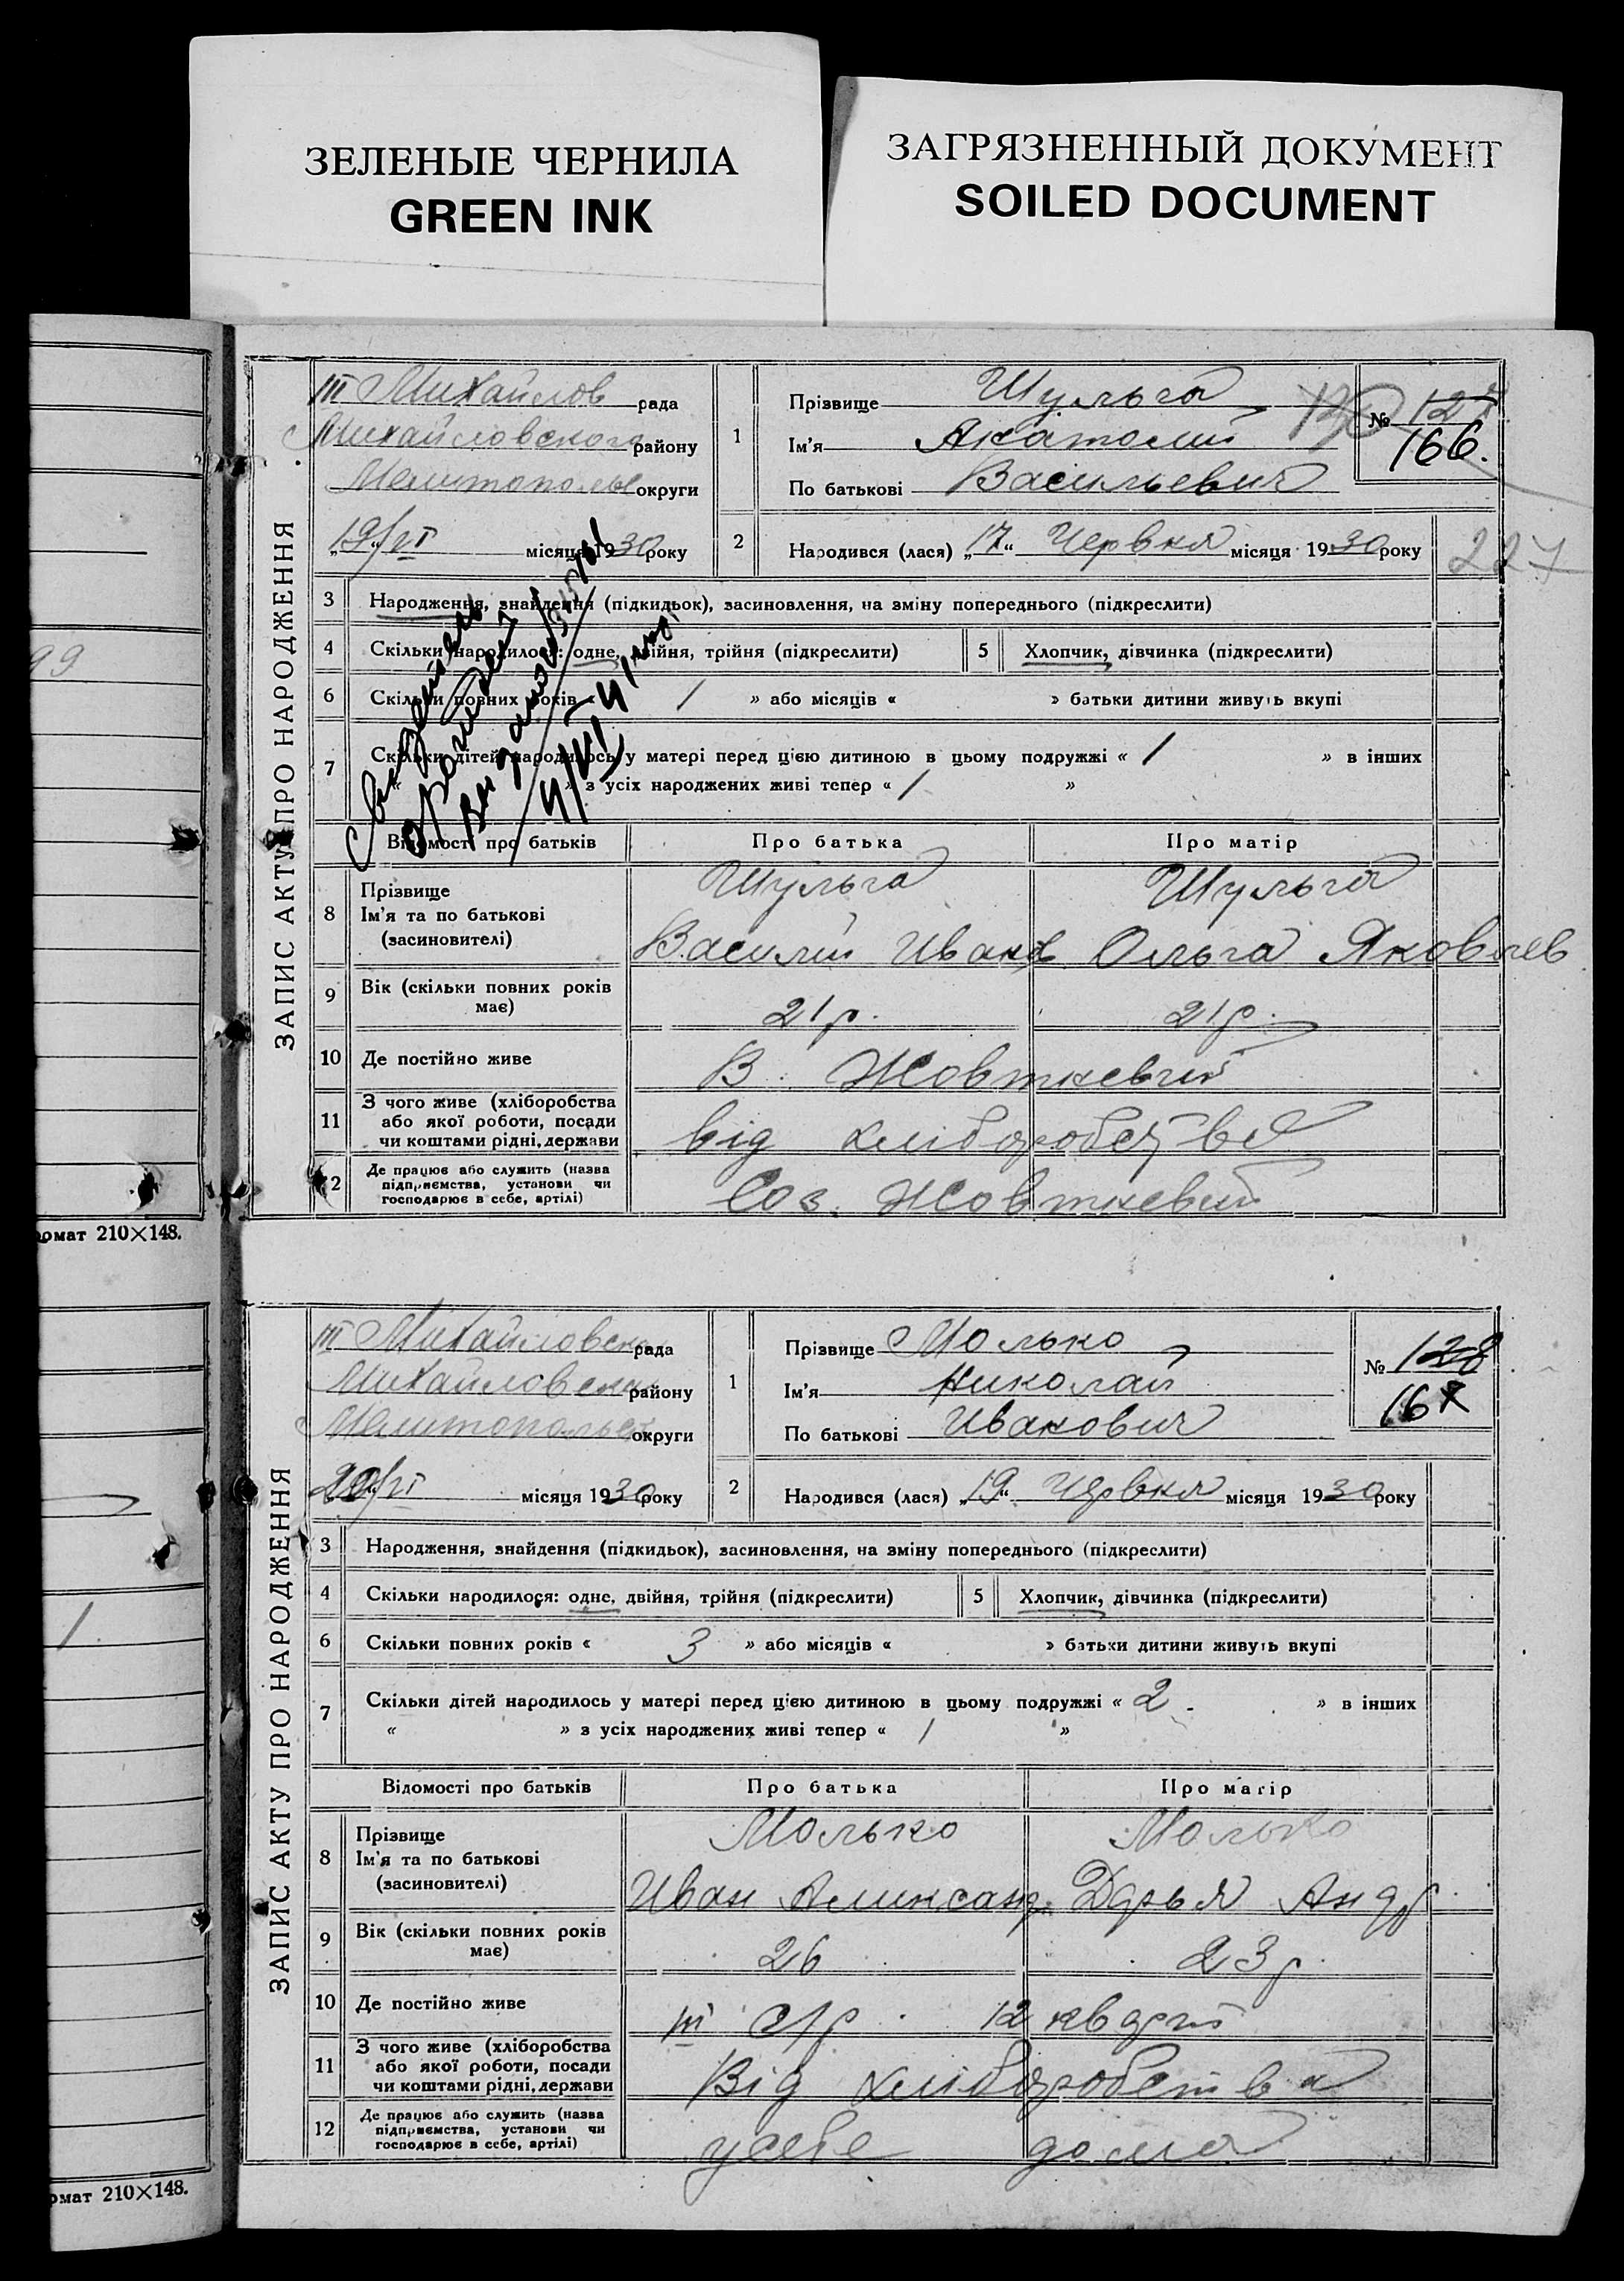 ЗЕЛЕНЫЕ ЧЕРНИЛА
GREEN INK
ЗАГРЯЗНЕННЫЙ ДОКУМЕНТ
SOILED DOCUMENT
99
омат 210×148.
1
омат 210×148.
ЗАПИС АКТУ ПРО НАРОДЖЕННЯ
III Михайлов рада
Михайловского району
Мелитополье округи
„19/VI місяця 1930 року
1
Прізвище Шульга
Ім'я Анатолий
По батькові Васильевич
130 № 127
166.
2 Народився (лася) „17“ Червня місяця 1930 року
227
3 Народження, знайдення (підкидьок), засиновлення, на зміну попереднього (підкреслити)
4 Скільки народилося: одне, двійня, трійня (підкреслити) 5 Хлопчик, дівчинка (підкреслити)
6 Скільки повних років « 1 » або місяців « » батьки дитини живуть вкупі
7 Скільки дітей народилось у матері перед цією дитиною в цьому подружжі « 1 » в інших
« » з усіх народжених живі тепер « 1 »
Відомості про батьків Про батька Про матір
8 Прізвище Шульга Шульга
Ім'я та по батькові
(засиновителі) Василий Иванов Ольга Яковлев
9 Вік (скільки повних років має) 21 р. 21 р.
10 Де постійно живе В. Жовтневий
11 З чого живе (хліборобства
або якої роботи, посади
чи коштами рідні, держави від хліборобства
12 Де працює або служить (назва
підприємства, установи чи
господарює в себе, артілі) Соз. Жовтневий
ЗАПИС АКТУ ПРО НАРОДЖЕННЯ
III Михайловская рада
Михайловскаи району
Мелитопольск округи
20/VI місяця 1930 року
1
Прізвище Молько
Ім'я Николай
По батькові Иванович
№ 128
167
2 Народився (лася) „19“ Червня місяця 1930 року
3 Народження, знайдення (підкидьок), засиновлення, на зміну попереднього (підкреслити)
4 Скільки народилося: одне, двійня, трійня (підкреслити) 5 Хлопчик, дівчинка (підкреслити)
6 Скільки повних років « 3 » або місяців « » батьки дитини живуть вкупі
7 Скільки дітей народилось у матері перед цією дитиною в цьому подружжі « 2 » в інших
« » з усіх народжених живі тепер « 1 »
Відомості про батьків Про батька Про матір
8 Прізвище Молько Молько
Ім'я та по батькові
(засиновителі) Иван Алинксанд. Дарья Андр
9 Вік (скільки повних років має) 26 23 р.
10 Де постійно живе III с/р. 12 кварт
11 З чого живе (хліборобства
або якої роботи, посади
чи коштами рідні, держави Від хліборобства
12 Де працює або служить (назва
підприємства, установи чи
господарює в себе, артілі) усебе дома